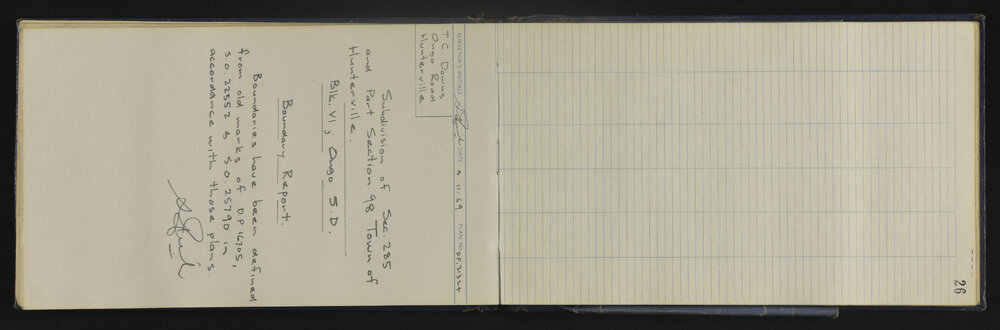 SURVEYOR'S INITIALS DATE 4.11.69 PLAN No. DP.31324
T.C. Downs
Ongo Road
Hunterville.
Subdivision of Sec. 285
and Part Section 98 Town of
Hunterville.
Blk. VI, Ongo S.D.
Boundary Report.
Boundaries have been defined
from old marks of D.P 16705,
S.O. 22552 & S.O. 25790 in
accordance with those plans.
26